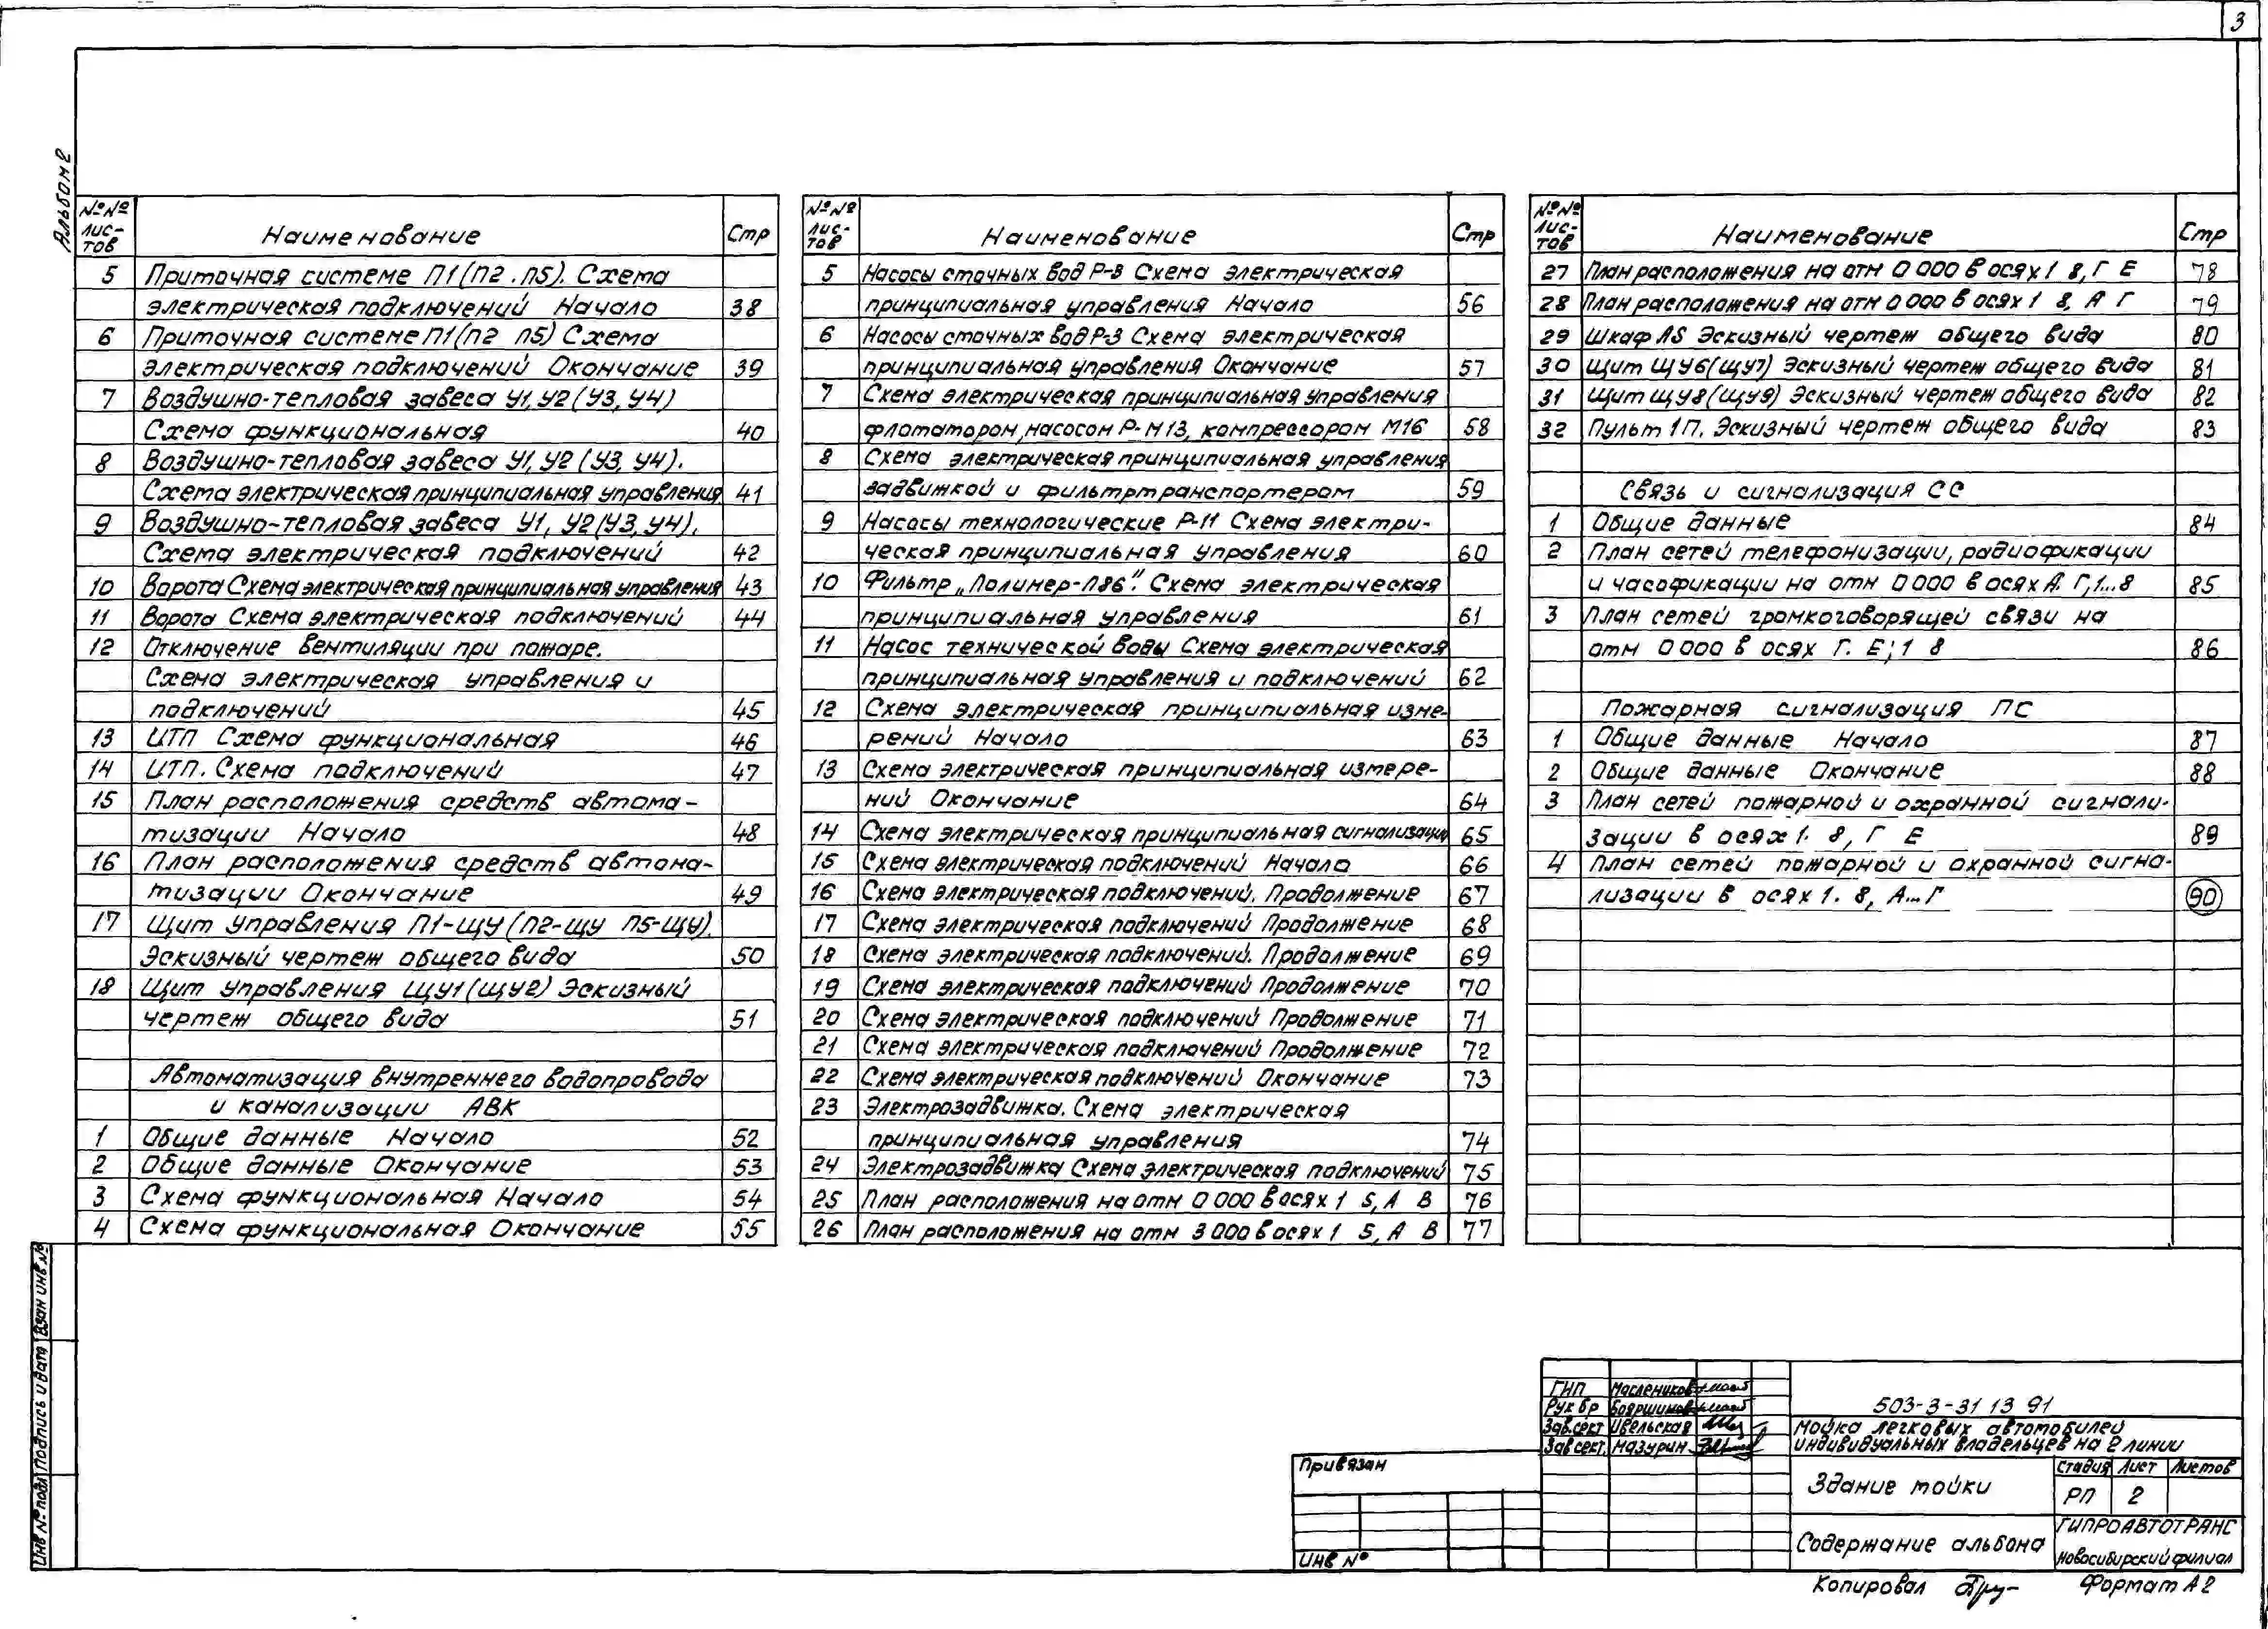 3
Альбом 2
№№ лис-тов Наименование Стр
5 Приточная системе П1(П2.П5). Схема
электрическая подключений Начало 38
6 Приточная системе П1(П2 П5) Схема
электрическая подключений Окончание 39
7 Воздушно-тепловая завеса У1,У2(У3,У4)
Схема функциональная 40
8 Воздушно-тепловая завеса У1,У2(У3,У4).
Схема электрическая принципиальная управления 41
9 Воздушно-тепловая завеса У1,У2(У3,У4).
Схема электрическая подключений 42
10 Ворота Схема электрическая принципиальная управления 43
11 Ворота Схема электрическая подключений 44
12 Отключение вентиляции при пожаре.
Схема электрическая управления и
подключений 45
13 ИТП Схема функциональная 46
14 ИТП. Схема подключений 47
15 План расположения средств автома-
тизации Начало 48
16 План расположения средств автома-
тизации Окончание 49
17 Щит управления П1-ЩУ(П2-ЩУ П5-ЩУ).
Эскизный чертеж общего вида 50
18 Щит управления ЩУ1(ЩУ2) Эскизный
чертеж общего вида 51
Автоматизация внутреннего водопровода
и канализации АВК
1 Общие данные Начало 52
2 Общие данные Окончание 53
3 Схема функциональная Начало 54
4 Схема функциональная Окончание 55
№№ лис-тов Наименование Стр
5 Насосы сточных вод Р-3 Схема электрическая
принципиальная управления Начало 56
6 Насосы сточных вод Р-3 Схема электрическая
принципиальная управления Окончание 57
7 Схема электрическая принципиальная управления
флотатором, насосом Р-М13, компрессором М16 58
8 Схема электрическая принципиальная управления
задвижкой и фильтртранспортером 59
9 Насосы технологические Р-11 Схема электри-
ческая принципиальная управления 60
10 Фильтр „Полимер-Л86". Схема электрическая
принципиальная управления 61
11 Насос технической воды Схема электрическая
принципиальная управления и подключений 62
12 Схема электрическая принципиальная изме-
рений Начало 63
13 Схема электрическая принципиальная измере-
ний Окончание 64
14 Схема электрическая принципиальная сигнализации 65
15 Схема электрическая подключений Начало 66
16 Схема электрическая подключений. Продолжение 67
17 Схема электрическая подключений Продолжение 68
18 Схема электрическая подключений. Продолжение 69
19 Схема электрическая подключений Продолжение 70
20 Схема электрическая подключений Продолжение 71
21 Схема электрическая подключений Продолжение 72
22 Схема электрическая подключений Окончание 73
23 Электрозадвижка. Схема электрическая
принципиальная управления 74
24 Электрозадвижка Схема электрическая подключений 75
25 План расположения на отм 0 000 в осях 1 5, А В 76
26 План расположения на отм 3 000 в осях 1 5, А В 77
№№ лис-тов Наименование Стр
27 План расположения на отм 0 000 в осях 1 8, Г Е 78
28 План расположения на отм 0 000 в осях 1 8, А Г 79
29 Шкаф ЛS Эскизный чертеж общего вида 80
30 Щит ЩУ6(ЩУ7) Эскизный чертеж общего вида 81
31 Щит ЩУ8(ЩУ9) Эскизный чертеж общего вида 82
32 Пульт 1П. Эскизный чертеж общего вида 83
Связь и сигнализация СС
1 Общие данные 84
2 План сетей телефонизации, радиофикации
и часофикации на отм 0 000 в осях А. Г, 1...8 85
3 План сетей громкоговорящей связи на
отм 0 000 в осях Г. Е; 1 8 86
Пожарная сигнализация ПС
1 Общие данные Начало 87
2 Общие данные Окончание 88
3 План сетей пожарной и охранной сигнали-
зации в осях 1. 8, Г Е 89
4 План сетей пожарной и охранной сигна-
лизации в осях 1. 8, А...Г 90
Взам инв №
Подпись и дата
Инв № подл
Привязан
Инв №
ГИП Маслеников
Рук бр Бояршинов
Зав.сект Цвельская
Зав сект. Мазурин
503-3-31 13 91
Мойка легковых автомобилей
индивидуальных владельцев на 2 линии
Здание мойки
Стадия Лист Листов
РП 2
Содержание альбома
ГИПРОАВТОТРАНС
Новосибирский филиал
Копировал
Формат А2